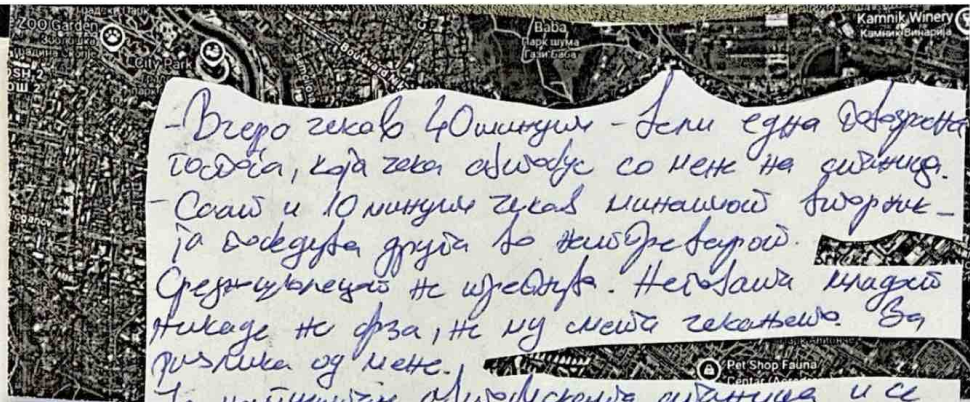 ZOO Garden
City Park
Baba
Парк шума
Гази Баба
Kamnik Winery
Камник Винарија
OSH 2
ОШ 2
-Вчера чекав 40 минути - вели една повозрасна
госпоѓа, која чека автобус со мене на станица.
-Саат и 10 минути чекав минатиот вторник -
ја надедува друга во
Средношколецот не трепнува. Неговата младост
никаде не брза, не му смета чекањето. За
разлика од мене.
Pet Shop Fauna
автобуската станица и се